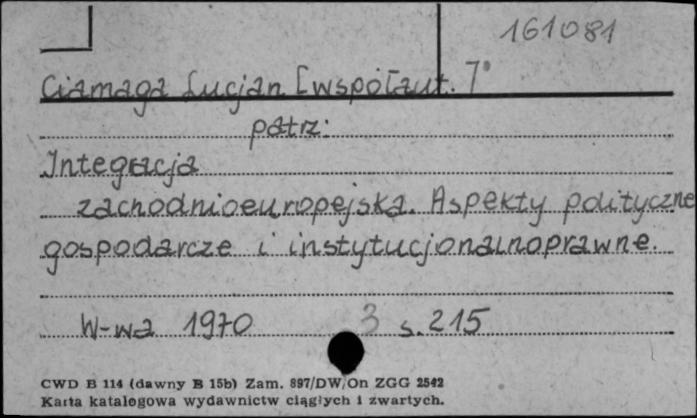 161081
Ciamaga Lucjan [współaut.]
patrz:
Integracja
zachodnioeuropejska. Aspekty polityczne
gospodarcze i instytucjonalnoprawne.
W-wa 1970 3 s. 215
CWD B 114 (dawny B 15b) Zam. 897/DW/On ZGG 2542
Karta katalogowa wydawnictw ciągłych i zwartych.